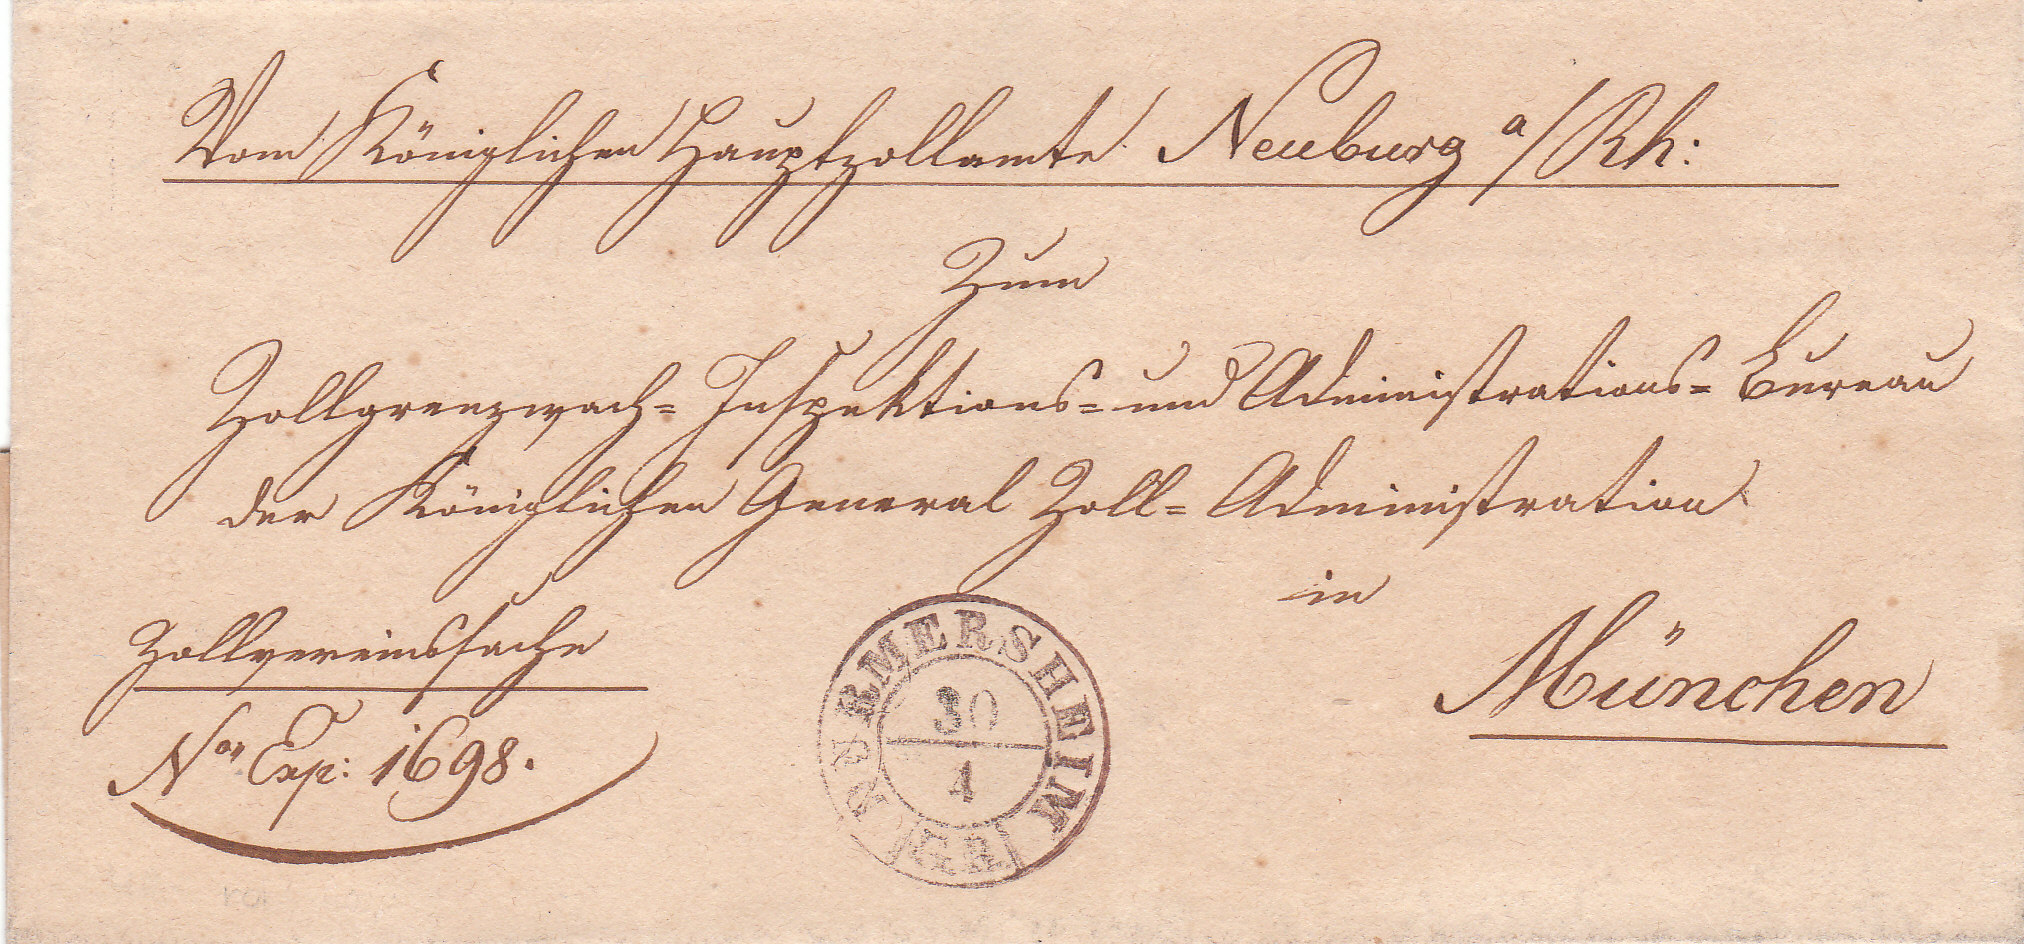 Vom Königlichen Hauptzollamte Neuburg a/Rh:
Zum
Zollgrenzwach= Inspektions= und Administrations= Bureau
der Königlichen General Zoll= Administration
in
München
Zollvereinssache
Nor Exp: 1698.
DURMERSHEIM
30
4
GR.